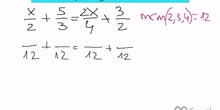 x/2 + 5/3 = 2x/4 + 3/2 mcm(2,3,4)=12
/12 + /12 = /12 + /12